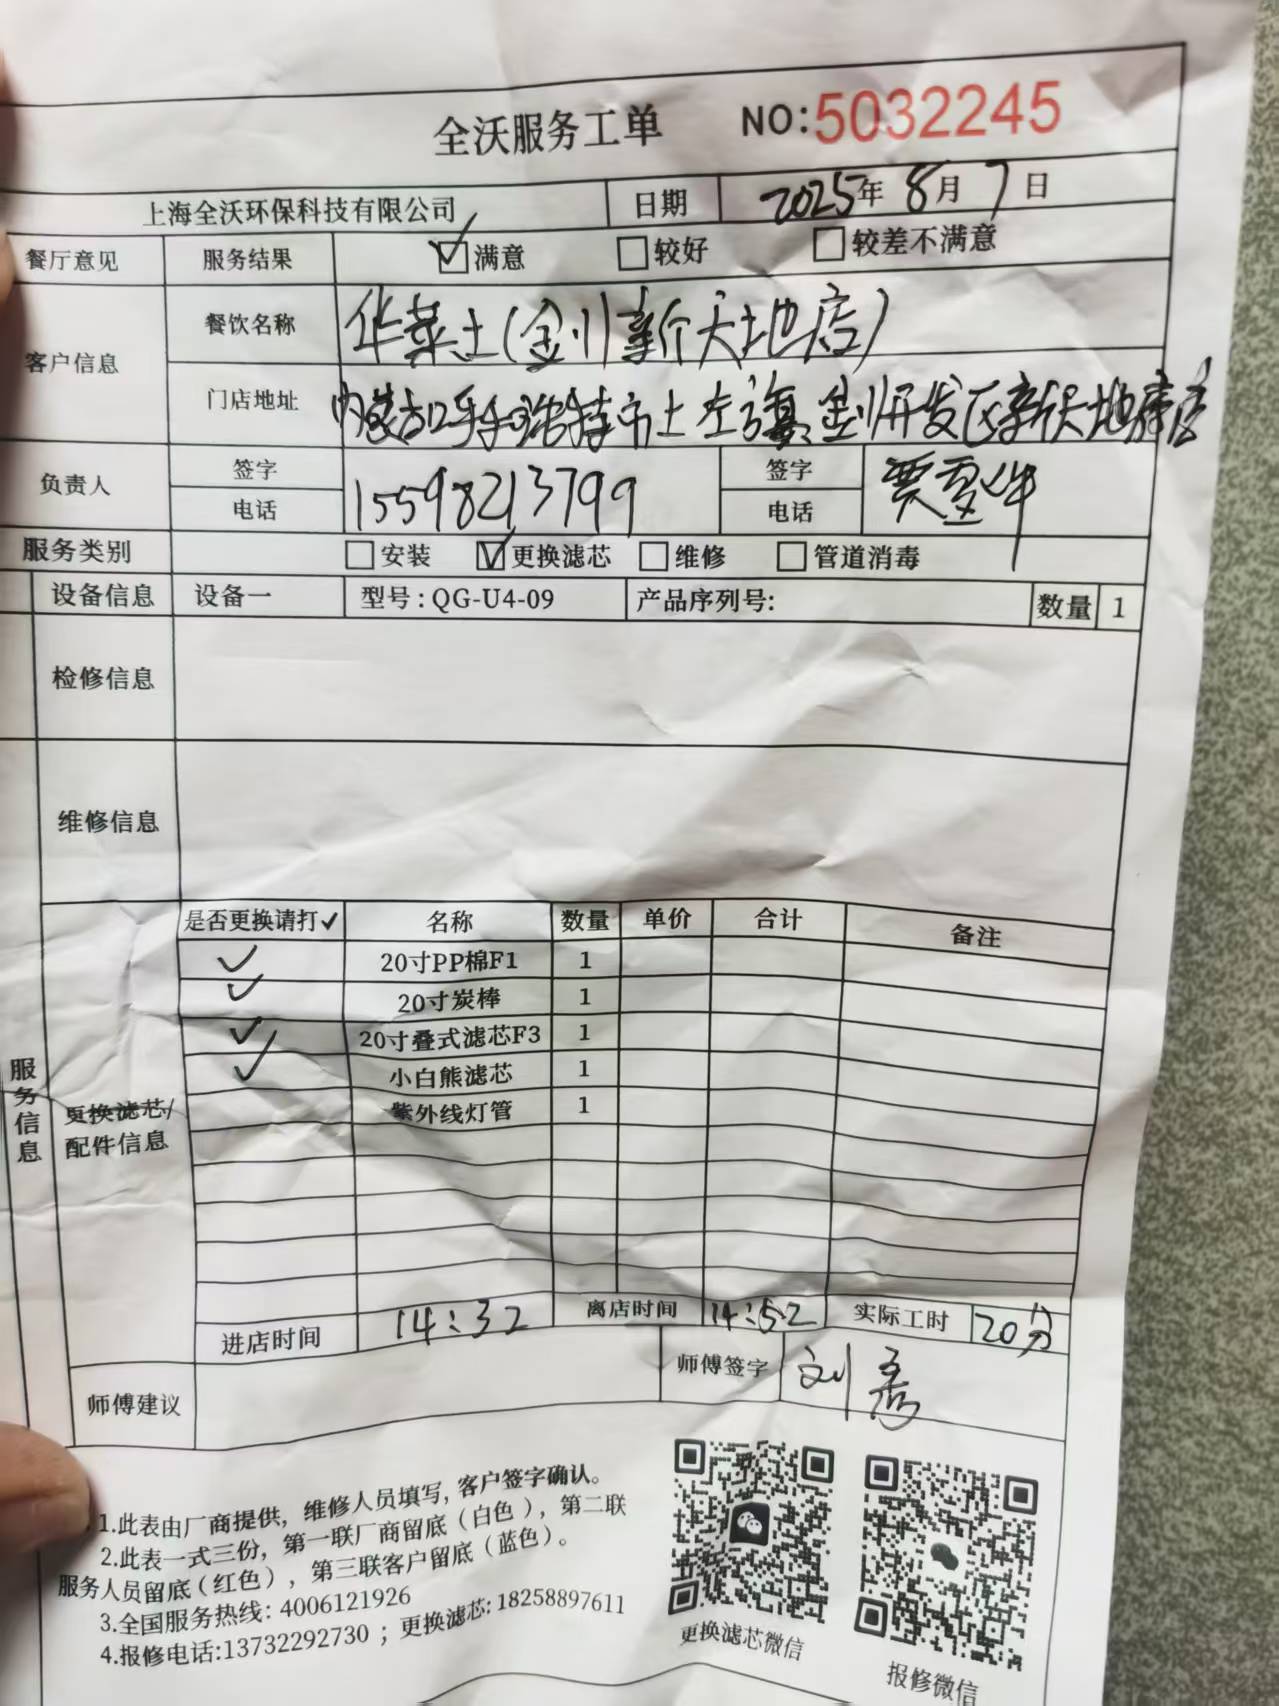 全沃服务工单 NO:5032245
上海全沃环保科技有限公司 日期 2025年8月7日
餐厅意见 服务结果 ☑满意 ☐较好 ☐较差不满意
客户信息 餐饮名称 华莱士(金川新天地店)
门店地址 内蒙古呼和浩特市土左旗金川开发区新天地
负责人 签字 电话 15598213799 签字 电话
服务类别 ☐安装 ☑更换滤芯 ☐维修 ☐管道消毒
设备信息 设备一 型号:QG-U4-09 产品序列号: 数量 1
检修信息
维修信息
服务信息
更换滤芯/
配件信息
是否更换请打✓ 名称 数量 单价 合计 备注
✓ 20寸PP棉F1 1
✓ 20寸炭棒 1
✓ 20寸叠式滤芯F3 1
✓ 小白熊滤芯 1
紫外线灯管 1
进店时间 14:32 离店时间 14:52 实际工时 20分
师傅建议 师傅签字 刘
1.此表由厂商提供，维修人员填写，客户签字确认。
2.此表一式三份，第一联厂商留底（白色），第二联
服务人员留底（红色），第三联客户留底（蓝色）。
3.全国服务热线：4006121926
4.报修电话:13732292730 ；更换滤芯:18258897611
更换滤芯微信
报修微信